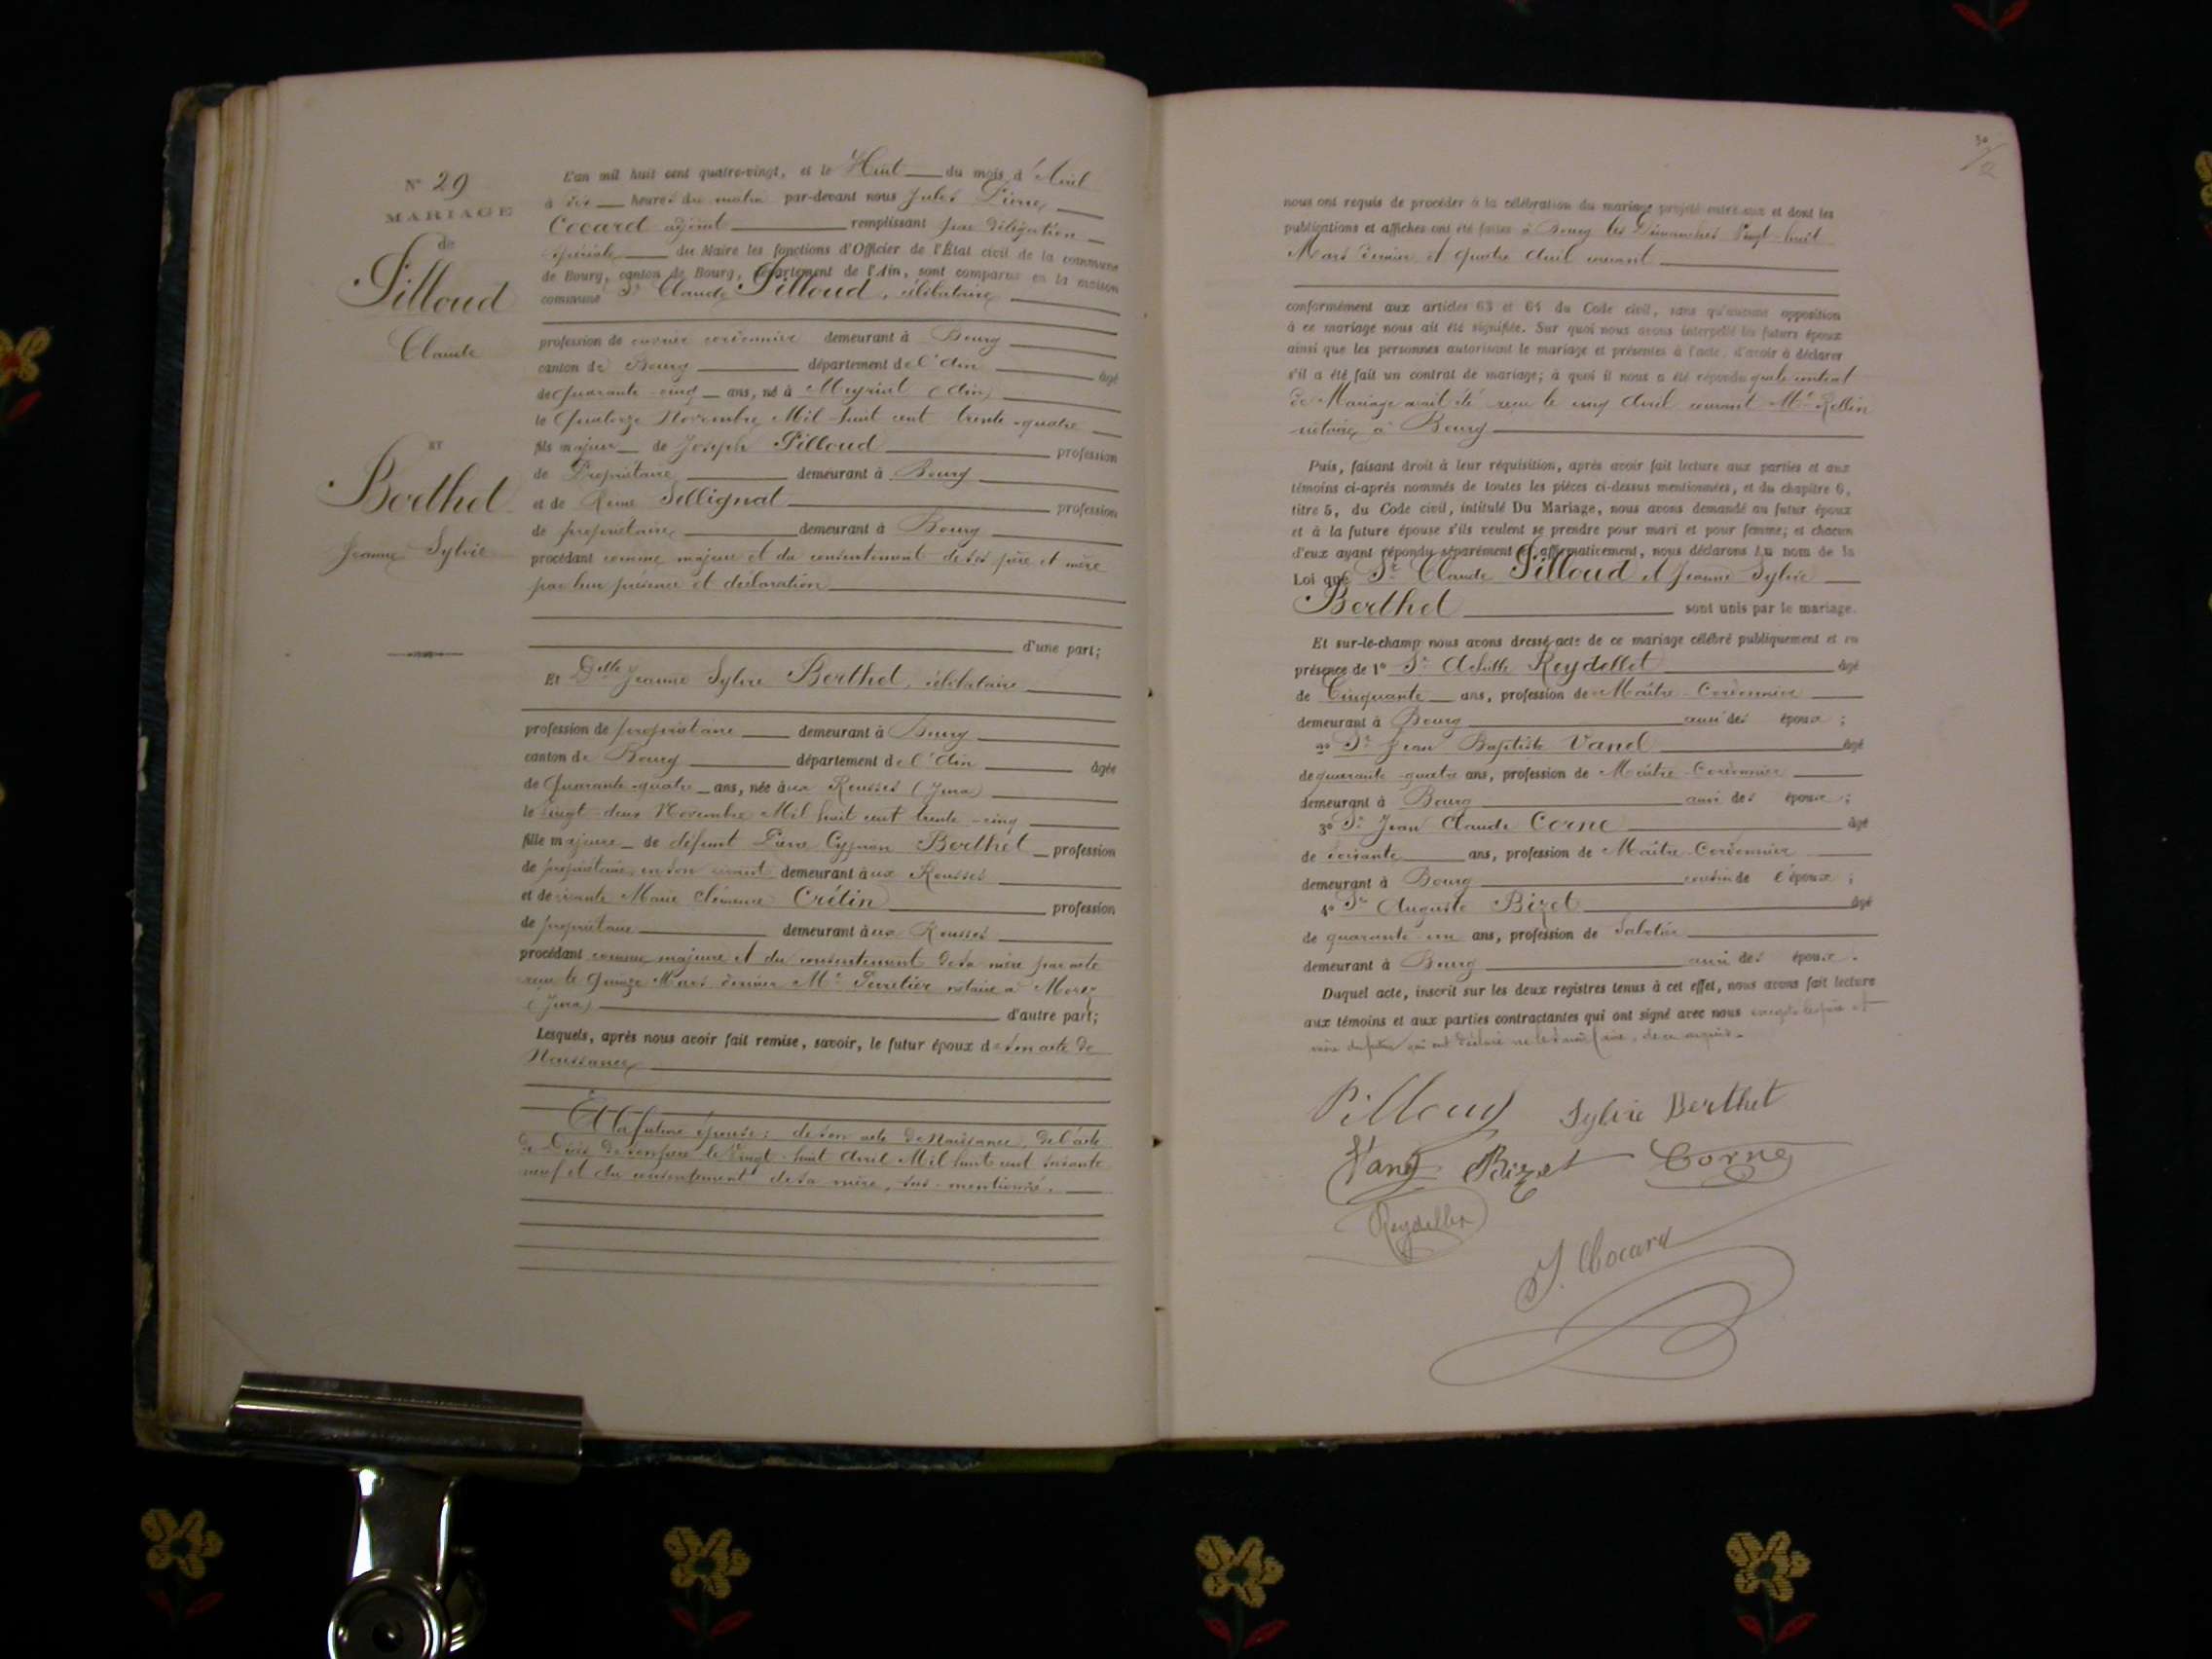 N° 29
MARIAGE
de
Pilloud
Claude
ET
Berthet
Jeanne Sylvie
L'an mil huit cent quatre-vingt, et le Huit du mois d'Avril
à dix heures du matin par-devant nous Jules Pierre
Cocard adjoint remplissant par délégation
spéciale du Maire les fonctions d'Officier de l'État civil de la commune
de Bourg, canton de Bourg, département de l'Ain, sont comparus en la maison
commune Sr Claude Pilloud, célibataire
profession de ouvrier cordonnier demeurant à Bourg
canton de Bourg département de l'Ain âgé
de quarante-cinq ans, né à Meyriat (Ain)
le Quatorze Novembre Mil huit cent trente-quatre
fils majeur de Joseph Pilloud profession
de Propriétaire demeurant à Bourg
et de Reine Sellignat profession
de propriétaire demeurant à Bourg
procédant comme majeur et du consentement de ses père et mère
par leur présence et déclaration
d'une part;
Et Delle Jeanne Sylvie Berthet, célibataire
profession de propriétaire demeurant à Bourg
canton de Bourg département de l'Ain âgée
de Quarante-quatre ans, née aux Rousses (Jura)
le Vingt-deux Novembre Mil huit cent trente-cinq
fille majeure de défunt Pierre Cyprien Berthet profession
de propriétaire, en son vivant demeurant aux Rousses
et de vivante Marie Clémence Crétin profession
de propriétaire demeurant aux Rousses
procédant comme majeure et du consentement de sa mère par acte
reçu le Quinze Mars dernier Me notaire à Morez
(Jura) d'autre part;
Lesquels, après nous avoir fait remise, savoir, le futur époux de son acte de
Naissance
Et la future épouse: de son acte de Naissance, de l'acte
de Décès de son père le Vingt-huit Avril Mil huit cent soixante
neuf et du consentement de sa mère, sus-mentionné.
30
nous ont requis de procéder à la célébration du mariage projeté entre eux et dont les
publications et affiches ont été faites à Bourg les Dimanches Vingt-huit
Mars dernier et quatre Avril courant
conformément aux articles 63 et 64 du Code civil, sans qu'aucune opposition
à ce mariage nous ait été signifiée. Sur quoi nous avons interpellé les futurs époux
ainsi que les personnes autorisant le mariage et présentes à l'acte, d'avoir à déclarer
s'il a été fait un contrat de mariage; à quoi il nous a été répondu que le contrat
de Mariage avait été reçu le cinq Avril courant Me Rollin
notaire à Bourg
Puis, faisant droit à leur réquisition, après avoir fait lecture aux parties et aux
témoins ci-après nommés de toutes les pièces ci-dessus mentionnées, et du chapitre 6,
titre 5, du Code civil, intitulé Du Mariage, nous avons demandé au futur époux
et à la future épouse s'ils veulent se prendre pour mari et pour femme; et chacun
d'eux ayant répondu séparément et affirmativement, nous déclarons au nom de la
Loi que Sr Claude Pilloud et Jeanne Sylvie
Berthet sont unis par le mariage.
Et sur-le-champ nous avons dressé acte de ce mariage célébré publiquement et en
présence de 1° Sr Achille Reydellet âgé
de Cinquante ans, profession de Maître-Cordonnier
demeurant à Bourg ami des époux;
2° Sr Jean Baptiste Vand âgé
de quarante-quatre ans, profession de Maître-Cordonnier
demeurant à Bourg ami des époux;
3° Sr Jean Claude Corne âgé
de soixante ans, profession de Maître-Cordonnier
demeurant à Bourg cousin de l'époux;
4° Sr Auguste Bizet âgé
de quarante-un ans, profession de Sabotier
demeurant à Bourg ami des époux.
Duquel acte, inscrit sur les deux registres tenus à cet effet, nous avons fait lecture
aux témoins et aux parties contractantes qui ont signé avec nous excepté les père et
mère du futur qui ont déclaré ne le savoir faire, de ce requis.
Pilloud Sylvie Berthet
Vand Bizet Corne
Reydellet
J. Cocard